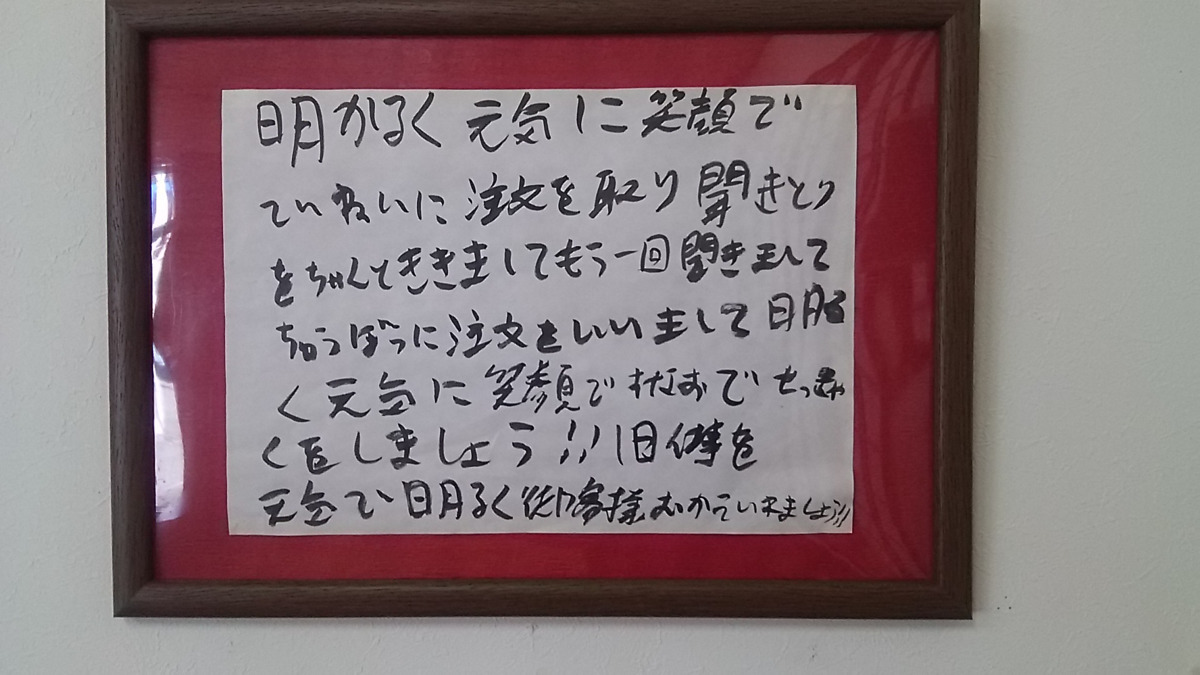 明かるく 元気に笑顔で
ていねいに注文を取り聞きとり
をちゃんとききましてもう一回聞きまして
ちゅうぼうに注文をいいまして明る
く元気に笑顔ですなおでせっきゃ
くをしましょう!!1日仕事を
元気で明るく御客様むかていれましょう!!